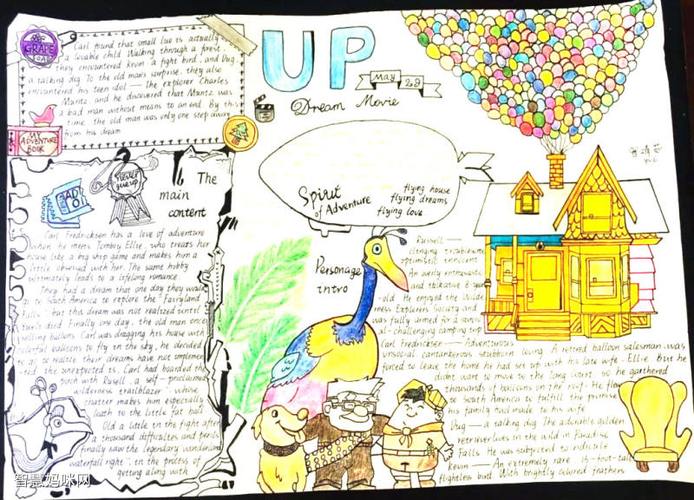 GRAPE
SODA
Carl found that small lue is actually
a lovable child. Walking through a forest,
they encountered kevin a fight bird, and Dug,
a talking dog. To the old man's surprise, they also
encountered his teen idol — the explorer Charles
Muntz, and he discovered that Muntz was
a bad man without means to an end. By this
time, the old man was only one step away
from his dream
MY
ADVENTURE
BOOK
UP
May 22
Dream Movie
Spirit
of Adventure
flying house
flying dreams
flying love
The
main
content
Never
give up
Carl Fredricksen has a love of adventure
when he meets Tomboy Ellie, who treats her
house like a big ship game and makes him a
little obsessed with her. The same hobby
eventually leads to a lifelong romance.
They had a dream that one day they would
go to South America to explore the "Fairyland
Falls", but this dream was not realized until
Ellie's died. Finally one day, the old man once
selling balloons Carl was dragging his house with
colorful balloons to fly in the sky, he decided
to realize their dreams have not implemen
ted. the unexpected is, Carl had boarded the
 with Russell, a self-proclaimed
wilderness trailblazer, whose
chatter makes him especially
loath to the little fat boy.
Old a little in the fight after
a thousand difficulties and perils
finally saw the legendary wonderland
waterfall right, in the process of
getting along with
Personage
intro
Russell —
clinging troublesome
optimistic innocent
An overly enthusiastic
and talkative 8-year
-old. He enjoyed the Wilder
ness Explorers Society and
was fully armed for a
al-challenging camping trip
Carl Fredricksen — Adventurous
unsocial cantankerous stubborn loving. A retired balloon salesman was
forced to leave the home he had set up with his late wife, Ellie but he
didnt want to move to the long want. so he gathered
thousands of balloons on the roof. He flew
to South America to fulfill the promise
his family had made to his wife
Dug — a talking dog. The adorable golden
retriever lives in the wild in Paradise
Falls. He was subjected to ridicule
Kevin — An extremely rare 13-foot-tall
flightless bird. With brightly colored feathers
智慧妈咪网